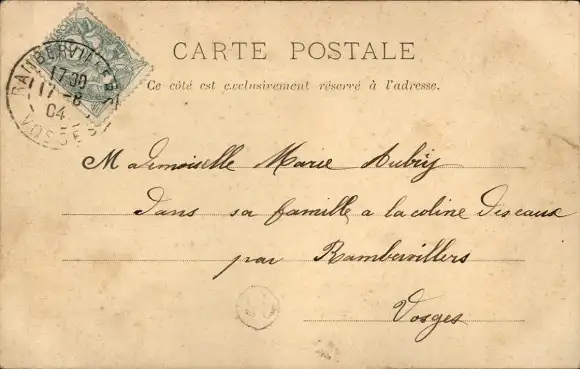 CARTE POSTALE
Ce côté est exclusivement réservé à l'adresse.
RAMBERVILLERS
17 00
17 -8
04
VOSGES
Mademoiselle Marie Aubry
dans sa famille a la coline des eaux
par Rambervillers
Vosges